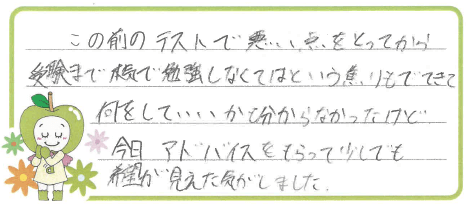 この前のテストで悪い点をとってから
受験まで本気で勉強しなくてはという焦りもでてきて
何をしていいか分からなかったけど
今日アドバイスをもらって少しでも
希望が見えた気がしました。